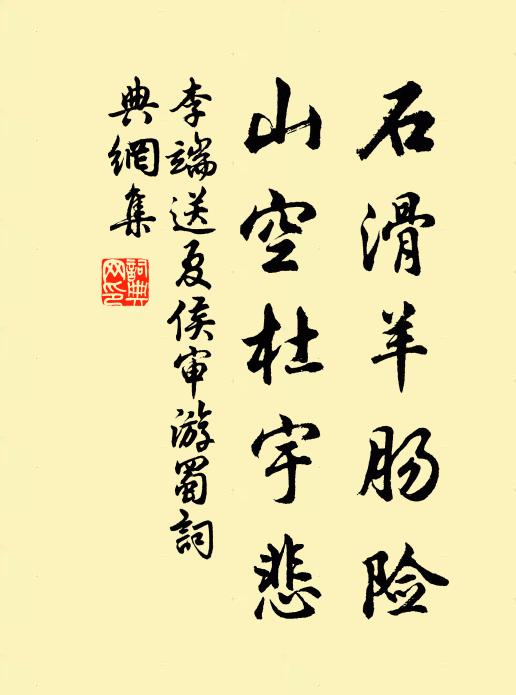 石滑羊肠险
山空杜宇悲
李端送夏侯审游蜀詞
典網集
詞典
网印